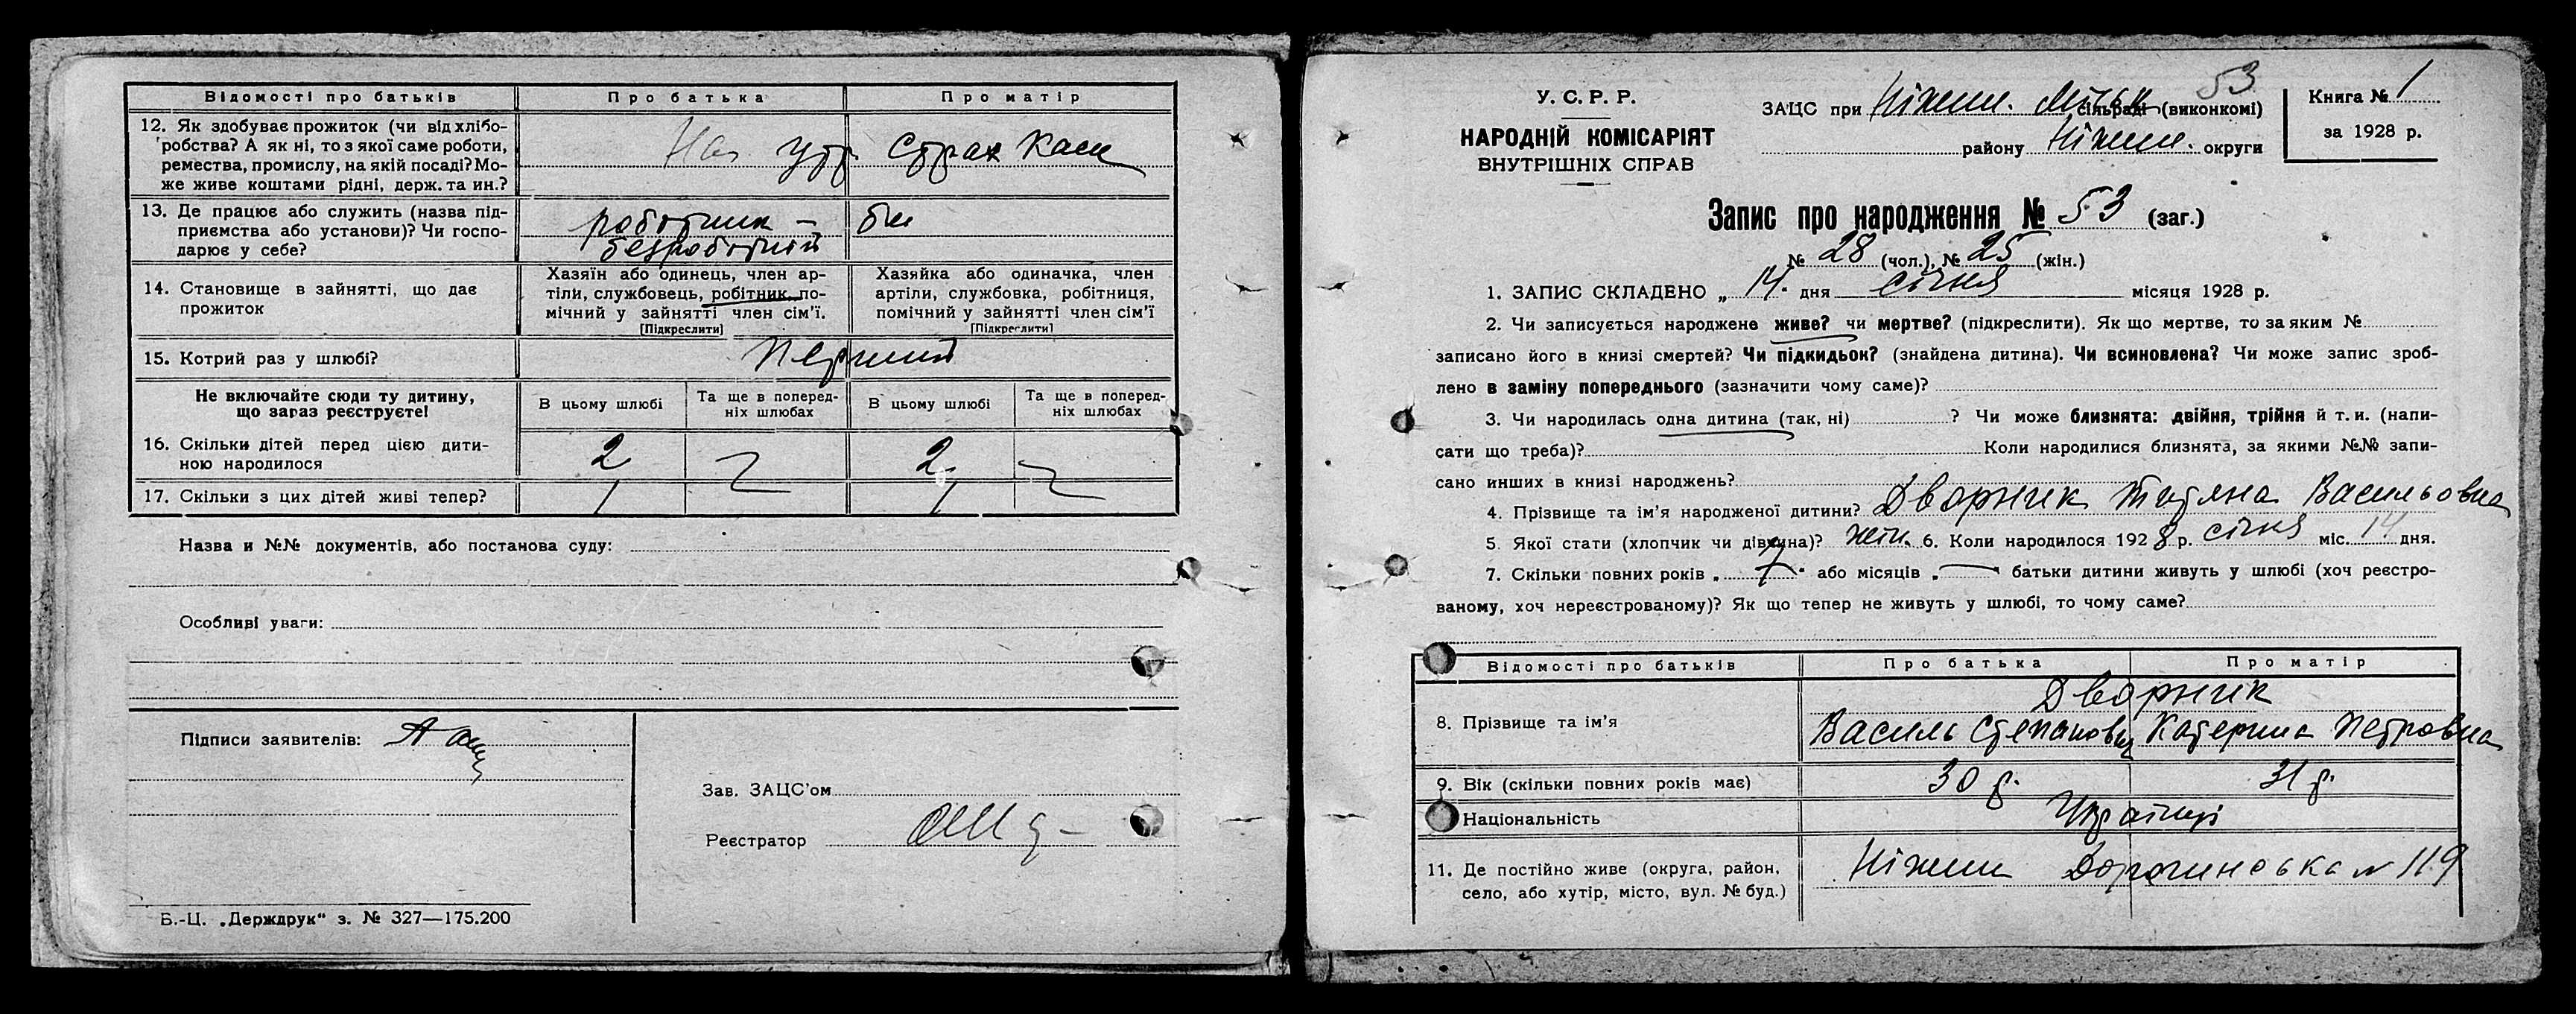 Відомості про батьків Про батька Про матір
12. Як здобуває прожиток (чи від хлібо-
робства? А як ні, то з якої саме роботи,
ремества, промислу, на якій посаді? Мо-
же живе коштами рідні, держ. та ин.?
На утр Страх Каси
13. Де працює або служить (назва під-
приємства або установи)? Чи госпо-
дарює у себе?
робітник –
безробітній
14. Становище в зайнятті, що дає
прожиток
Хазяїн або одинець, член ар-
тіли, службовець, робітник, по-
мічний у зайнятті член сім'ї.
[Підкреслити]
Хазяйка або одиначка, член
артіли, службовка, робітниця,
помічний у зайнятті член сім'ї
[Підкреслити]
15. Котрий раз у шлюбі? Перший
Не включайте сюди ту дитину,
що зараз реєструєте!
В цьому шлюбі
Та ще в поперед-
ніх шлюбах
В цьому шлюбі
Та ще в поперед-
ніх шлюбах
16. Скільки дітей перед цією дити-
ною народилося
2 2
17. Скільки з цих дітей живі тепер? 1 1
Назва и №№ документів, або постанова суду:
Особливі уваги:
Підписи заявителів:
Зав. ЗАЦС'ом
Реєстратор
Б.-Ц. „Держдрук“ з. № 327—175.200
53
У. С. Р. Р.
НАРОДНІЙ КОМІСАРІЯТ
ВНУТРІШНІХ СПРАВ
ЗАЦС при Ніжин. Міськ сільраді (виконкомі)
району Ніжин. округи
Книга № 1
за 1928 р.
Запис про народження № 53 (заг.)
№ 28 (чол.), № 25 (жін.)
1. ЗАПИС СКЛАДЕНО „ 14. дня січня місяця 1928 р.
2. Чи записується народжене живе? чи мертве? (підкреслити). Як що мертве, то за яким №
записано його в книзі смертей? Чи підкидьок? (знайдена дитина). Чи всиновлена? Чи може запис зроб-
лено в заміну попереднього (зазначити чому саме)?
3. Чи народилась одна дитина (так, ні) ? Чи може близнята: двійня, трійня й т. и. (напи-
сати що треба)? Коли народилися близнята, за якими №№ запи-
сано инших в книзі народжень?
4. Прізвище та ім'я народженої дитини? Дворник Тетяна Васильовна
5. Якої стати (хлопчик чи дівчина)? жін. 6. Коли народилося 1928 р. січня міс. 14 дня.
7. Скільки повних років „ 7 “ або місяців „ — “ батьки дитини живуть у шлюбі (хоч реєстро-
ваному, хоч нереєстрованому)? Як що тепер не живуть у шлюбі, то чому саме?
Відомості про батьків Про батька Про матір
Дворник
8. Прізвище та ім'я Василь Степанович Катерина Петровна
9. Вік (скільки повних років має) 30 р. 31 р.
Національність Українці
11. Де постійно живе (округа, район,
село, або хутір, місто, вул. № буд.)
Ніжин Дорогинська № 119